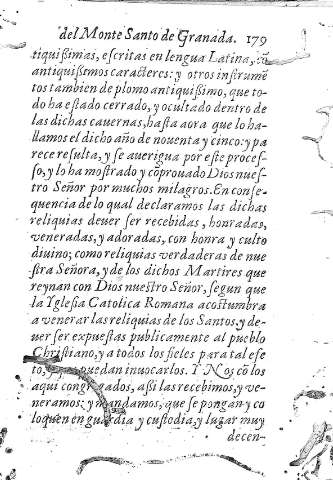 del Monte Santo de Granada. 179
tiquißimas, eſcritas en lengua Latina, cõ
antiquißimos caracteres: y otros inſtrumē
tos tambien de plomo antiquißimo, que to-
do ha eſtado cerrado, y ocultado dentro de
las dichas cauernas, haſta aora que lo ha-
llamos el dicho año de nouenta y cinco: y pa
rece reſulta, y ſe auerigua por eſte proceſ-
ſo, y lo ha moſtrado y coprouado Dios nueſ-
tro Señor por muchos milagros. En conſe-
quencia de lo qual declaramos las dichas
reliquias deuer ſer recebidas, honradas,
veneradas, y adoradas, con honra y culto
diuino; como reliquias verdaderas de nue-
ſtra Señora, y de los dichos Martires que
reynan con Dios nueſtro Señor, ſegun que
la Ygleſia Catolica Romana acoſtumbra
a venerar las reliquias de los Santos, y de-
uer ſer expueſtas publicamente al pueblo
Chriſtiano, y a todos los fieles para tal efe
to, q puedan inuocarlos. Y Nos cõ los
aqui congregados, aßi las recebimos, y ve-
neramos: y mandamos, que ſe pongan y co
loquen en guardia y cuſtodia, y lugar muy
decen-